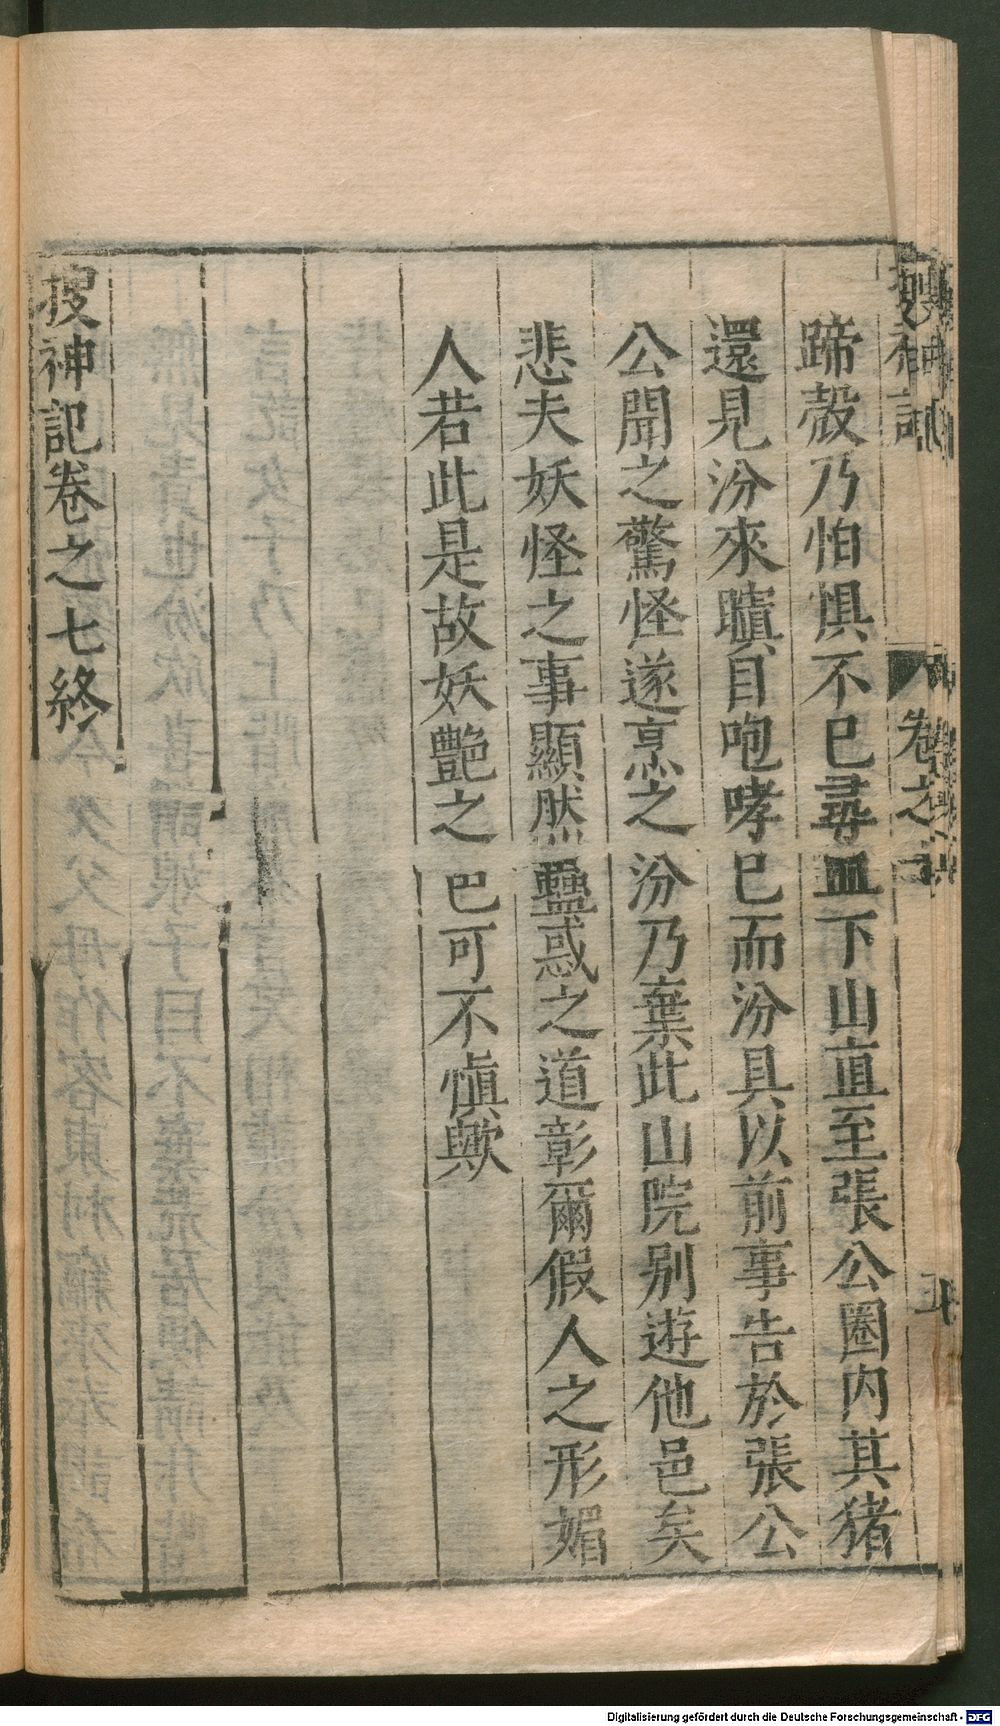 蹄殼乃怕惧不巳尋血下山直至張公圈内其猪
還見汾來瞋目咆哮巳而汾具以前事告於張公
公聞之驚怪遂烹之汾乃棄此山院别遊他邑矣
悲夫妖怪之事顯然蠱惑之道彰爾假人之形媚
人若此是故妖艷之巴可不慎歟
搜神記卷之七終
Digitalisierung gefördert durch die Deutsche Forschungsgemeinschaft - DFG